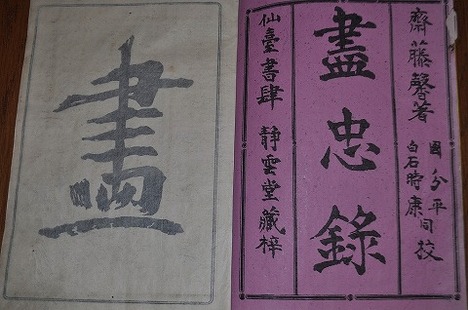 齋藤馨著
國分平
白石時康同校
盡忠錄
仙臺書肆 靜雲堂藏梓
盡